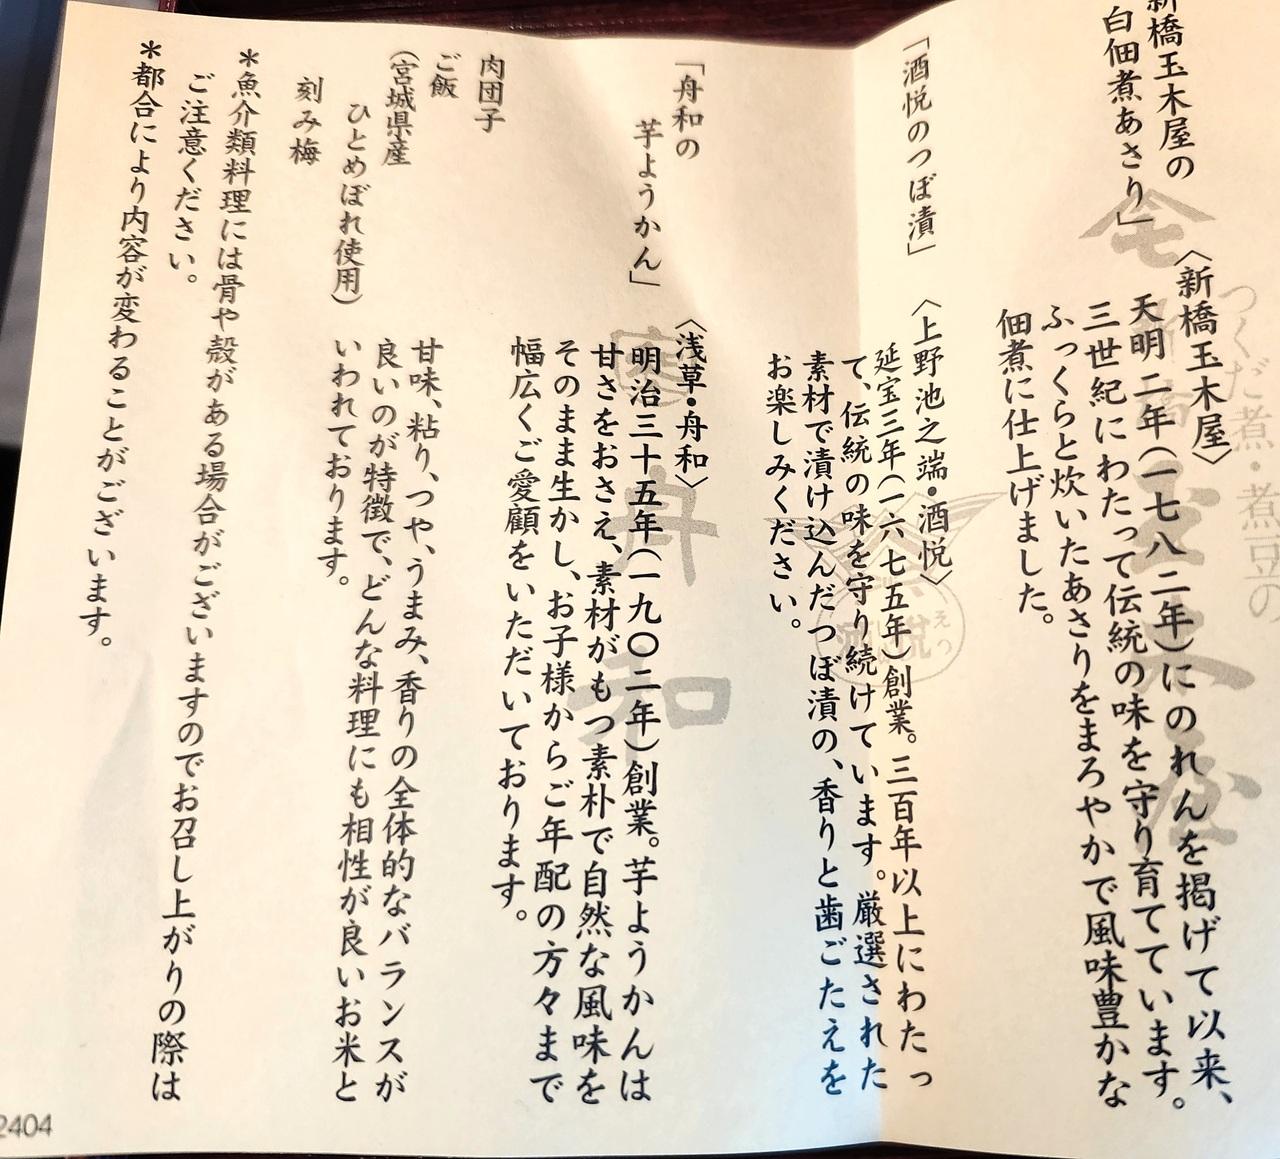 新橋玉木屋の
白佃煮あさり」
〈新橋玉木屋〉
天明二年（一七八二年）にのれんを掲げて以来、
三世紀にわたって伝統の味を守り育てています。
ふっくらと炊いたあさりをまろやかで風味豊かな
佃煮に仕上げました。
つくだ煮・煮豆の
新橋玉木屋
「酒悦のつぼ漬」
〈上野池之端・酒悦〉
延宝三年（一六七五年）創業。三百年以上にわたっ
て、伝統の味を守り続けています。厳選された
素材で漬け込んだつぼ漬の、香りと歯ごたえを
お楽しみください。
酒悦
えつ
「舟和の
芋ようかん」
〈浅草・舟和〉
明治三十五年（一九〇二年）創業。芋ようかんは
甘さをおさえ、素材がもつ素朴で自然な風味を
そのまま生かし、お子様からご年配の方々まで
幅広くご愛顧をいただいております。
舟和
肉団子
ご飯
（宮城県産
ひとめぼれ使用）
甘味、粘り、つや、うまみ、香りの全体的なバランスが
良いのが特徴で、どんな料理にも相性が良いお米と
いわれております。
刻み梅
＊魚介類料理には骨や殻がある場合がございますのでお召し上がりの際は
ご注意ください。
＊都合により内容が変わることがございます。
2404